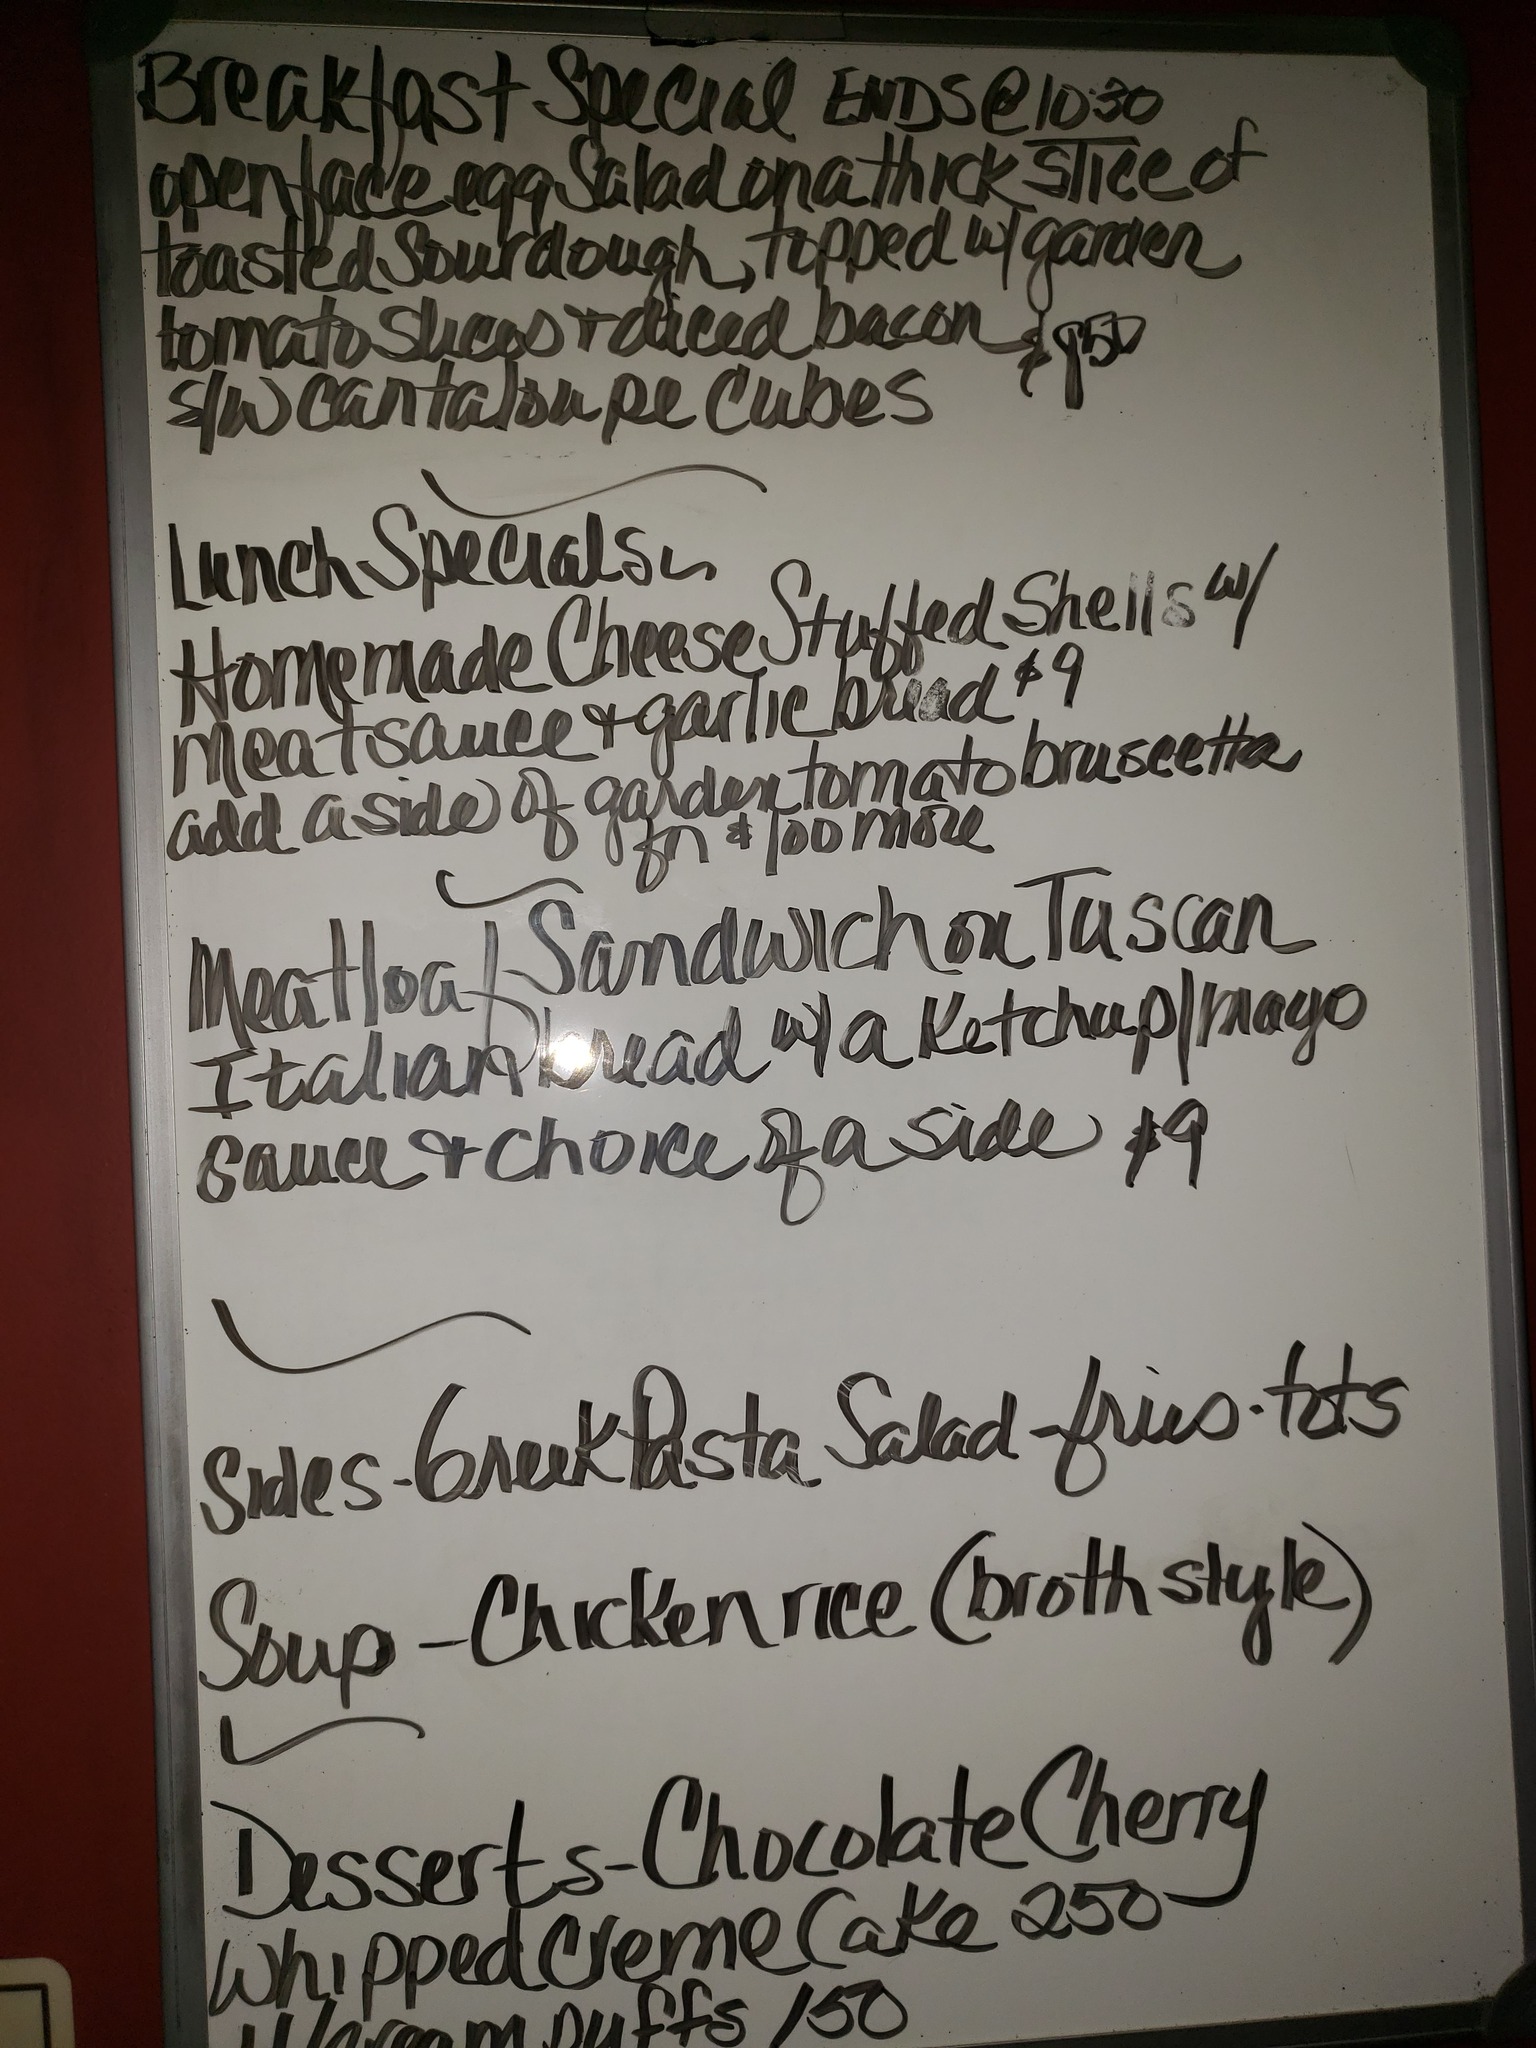 Breakfast Special ENDS@10:30
open face egg Salad on a thick slice of
toasted Sourdough, topped w/ garden
tomato slices + diced bacon $950
s/w cantaloupe Cubes
Lunch Specials
Homemade Cheese Stuffed Shells w/
meatsauce + garlic bread $9
add a side of garden tomato bruscetta
fn $100 more
Meatloaf Sandwich on Tuscan
Italian bread w/ a Ketchup/mayo
sauce + choice of a side $9
Sides-Greek Pasta Salad-fries-tots
Soup-Chicken rice (broth style)
Desserts-Chocolate Cherry
Whipped Creme Cake 250
puffs 150